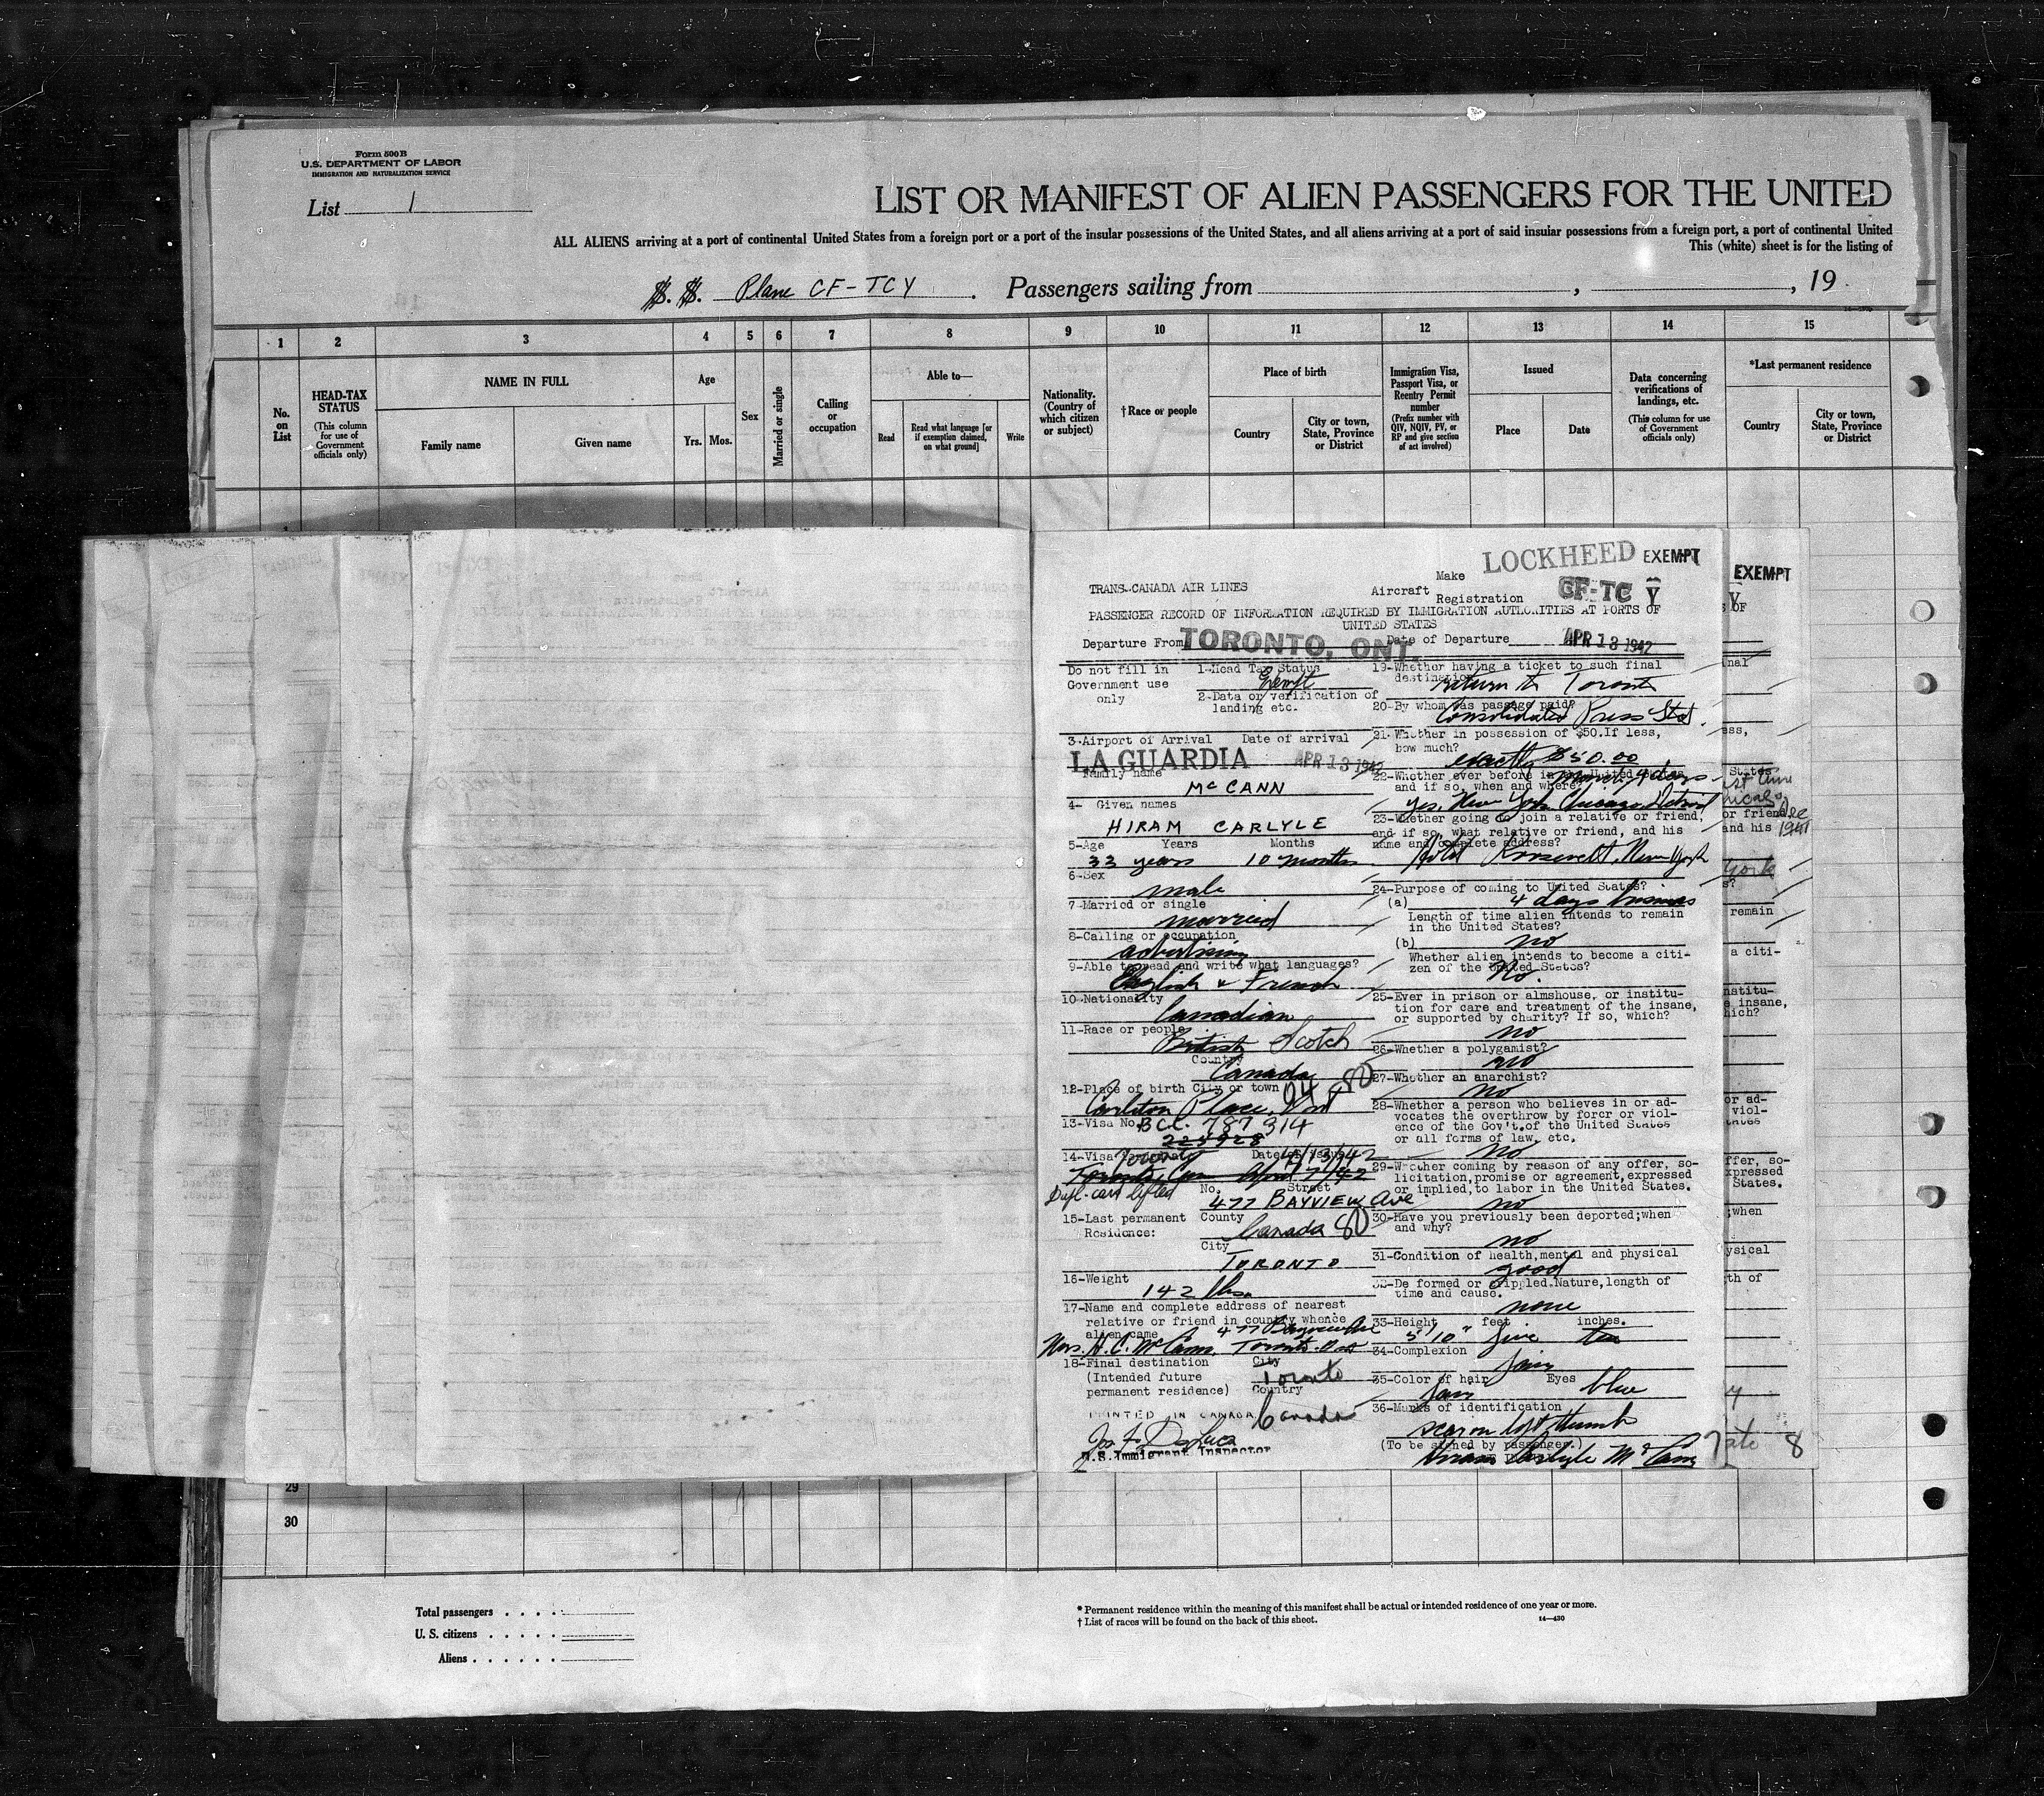 Form 500B
U.S. DEPARTMENT OF LABOR
IMMIGRATION AND NATURALIZATION SERVICE
List 1
LIST OR MANIFEST OF ALIEN PASSENGERS FOR THE UNITED
ALL ALIENS arriving at a port of continental United States from a foreign port or a port of the insular possessions of the United States, and all aliens arriving at a port of said insular possessions from a foreign port, a port of continental United
This (white) sheet is for the listing of
S. S. Plane CF-TCY. Passengers sailing from , , 19
1 2 3 4 5 6 7 8 9 10 11 12 13 14 15
No. on List
HEAD-TAX STATUS
(This column for use of Government officials only)
NAME IN FULL
Family name
Given name
Age
Yrs. Mos.
Sex
Married or single
Calling or occupation
Able to—
Read
Read what language [or if exemption claimed, on what ground]
Write
Nationality. (Country of which citizen or subject)
† Race or people
Place of birth
Country
City or town, State, Province or District
Immigration Visa, Passport Visa, or Reentry Permit number
(Prefix number with QIV, NQIV, PV, or RP and give section of act involved)
Issued
Place
Date
Data concerning verifications of landings, etc.
(This column for use of Government officials only)
*Last permanent residence
Country
City or town, State, Province or District
TRANS-CANADA AIR LINES
Aircraft
Make LOCKHEED EXEMPT
Registration CF-TC Y
EXEMPT
PASSENGER RECORD OF INFORMATION REQUIRED BY IMMIGRATION AUTHORITIES AT PORTS OF
UNITED STATES
Departure From TORONTO, ONT. Date of Departure APR 13 1942
Do not fill in
Government use
only
1-Head Tax Status
Exempt
2-Data or verification of
landing etc.
3-Airport of Arrival Date of arrival
LA GUARDIA APR 13 1942
Family name
McCANN
4- Given names
HIRAM CARLYLE
5-Age Years Months
33 years 10 months
6-Sex
male
7-Married or single
married
8-Calling or occupation
advertising
9-Able to read and write what languages?
English & French
10-Nationality
Canadian
11-Race or people
British Scotch
Country
Canada
12-Place of birth City or town
Carleton Place, Ont
13-Visa No. BCC. 787314
14-Visa
Toronto
Toronto, Can April 7/42
No. Street
477 BAYVIEW Ave
15-Last permanent
Residence:
County
Canada 80
City
TORONTO
16-Weight
142 lbs.
17-Name and complete address of nearest
relative or friend in country whence
alien came 477 Bayview Ave
Mrs. H. C. McCann, Toronto. Ont
18-Final destination
(Intended future
permanent residence)
City
Toronto
Country
Canada
PRINTED IN CANADA
U.S. Immigrant Inspector
19-Whether having a ticket to such final
destination
return to Toronto
20-By whom was passage paid?
Consolidated Press Ltd.
21-Whether in possession of $50.If less,
how much?
exactly $50.00
22-Whether ever before in the United States
and if so, when and where?
yes, New York, Chicago, Detroit
23-Whether going to join a relative or friend,
and if so, what relative or friend, and his
name and complete address?
Hotel Roosevelt, New York
24-Purpose of coming to United States?
(a) 4 days business
Length of time alien intends to remain
in the United States?
(b) no
Whether alien intends to become a citi-
zen of the United States?
No.
25-Ever in prison or almshouse, or institu-
tion for care and treatment of the insane,
or supported by charity? If so, which?
no
26-Whether a polygamist?
no
27-Whether an anarchist?
no
28-Whether a person who believes in or ad-
vocates the overthrow by forcr or viol-
ence of the Gov't.of the United States
or all forms of law, etc.
No
29-Whether coming by reason of any offer, so-
licitation,promise or agreement, expressed
or implied, to labor in the United States.
no
30-Have you previously been deported;when
and why?
no
31-Condition of health,mental and physical
good
32-De formed or crippled.Nature,length of
time and cause.
none
33-Height feet inches.
5'10" five ten
34-Complexion
fair
35-Color of hair Eyes
fair blue
36-Marks of identification
scar on left thumb
(To be signed by passenger.)
Hiram Carlyle McCann
29
30
Total passengers
U. S. citizens
Aliens
* Permanent residence within the meaning of this manifest shall be actual or intended residence of one year or more.
† List of races will be found on the back of this sheet.
14—430